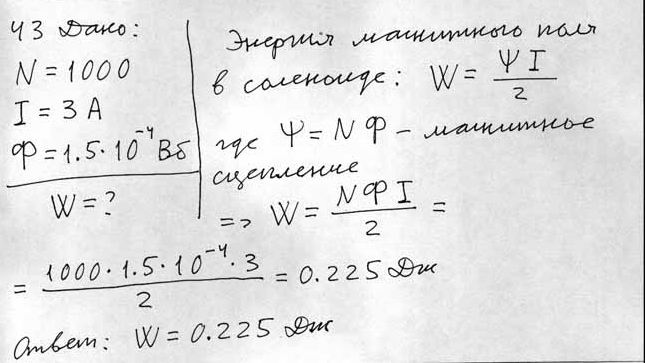 43 Дано:
N = 1000
I = 3 А
Ф = 1.5·10⁻⁴ Вб
W = ?
Энергия магнитного поля
в соленоиде: W = ΨI/2
где Ψ = NФ – магнитное
сцепление
=> W = NФI/2 =
= 1000·1.5·10⁻⁴·3/2 = 0.225 Дж
Ответ: W = 0.225 Дж